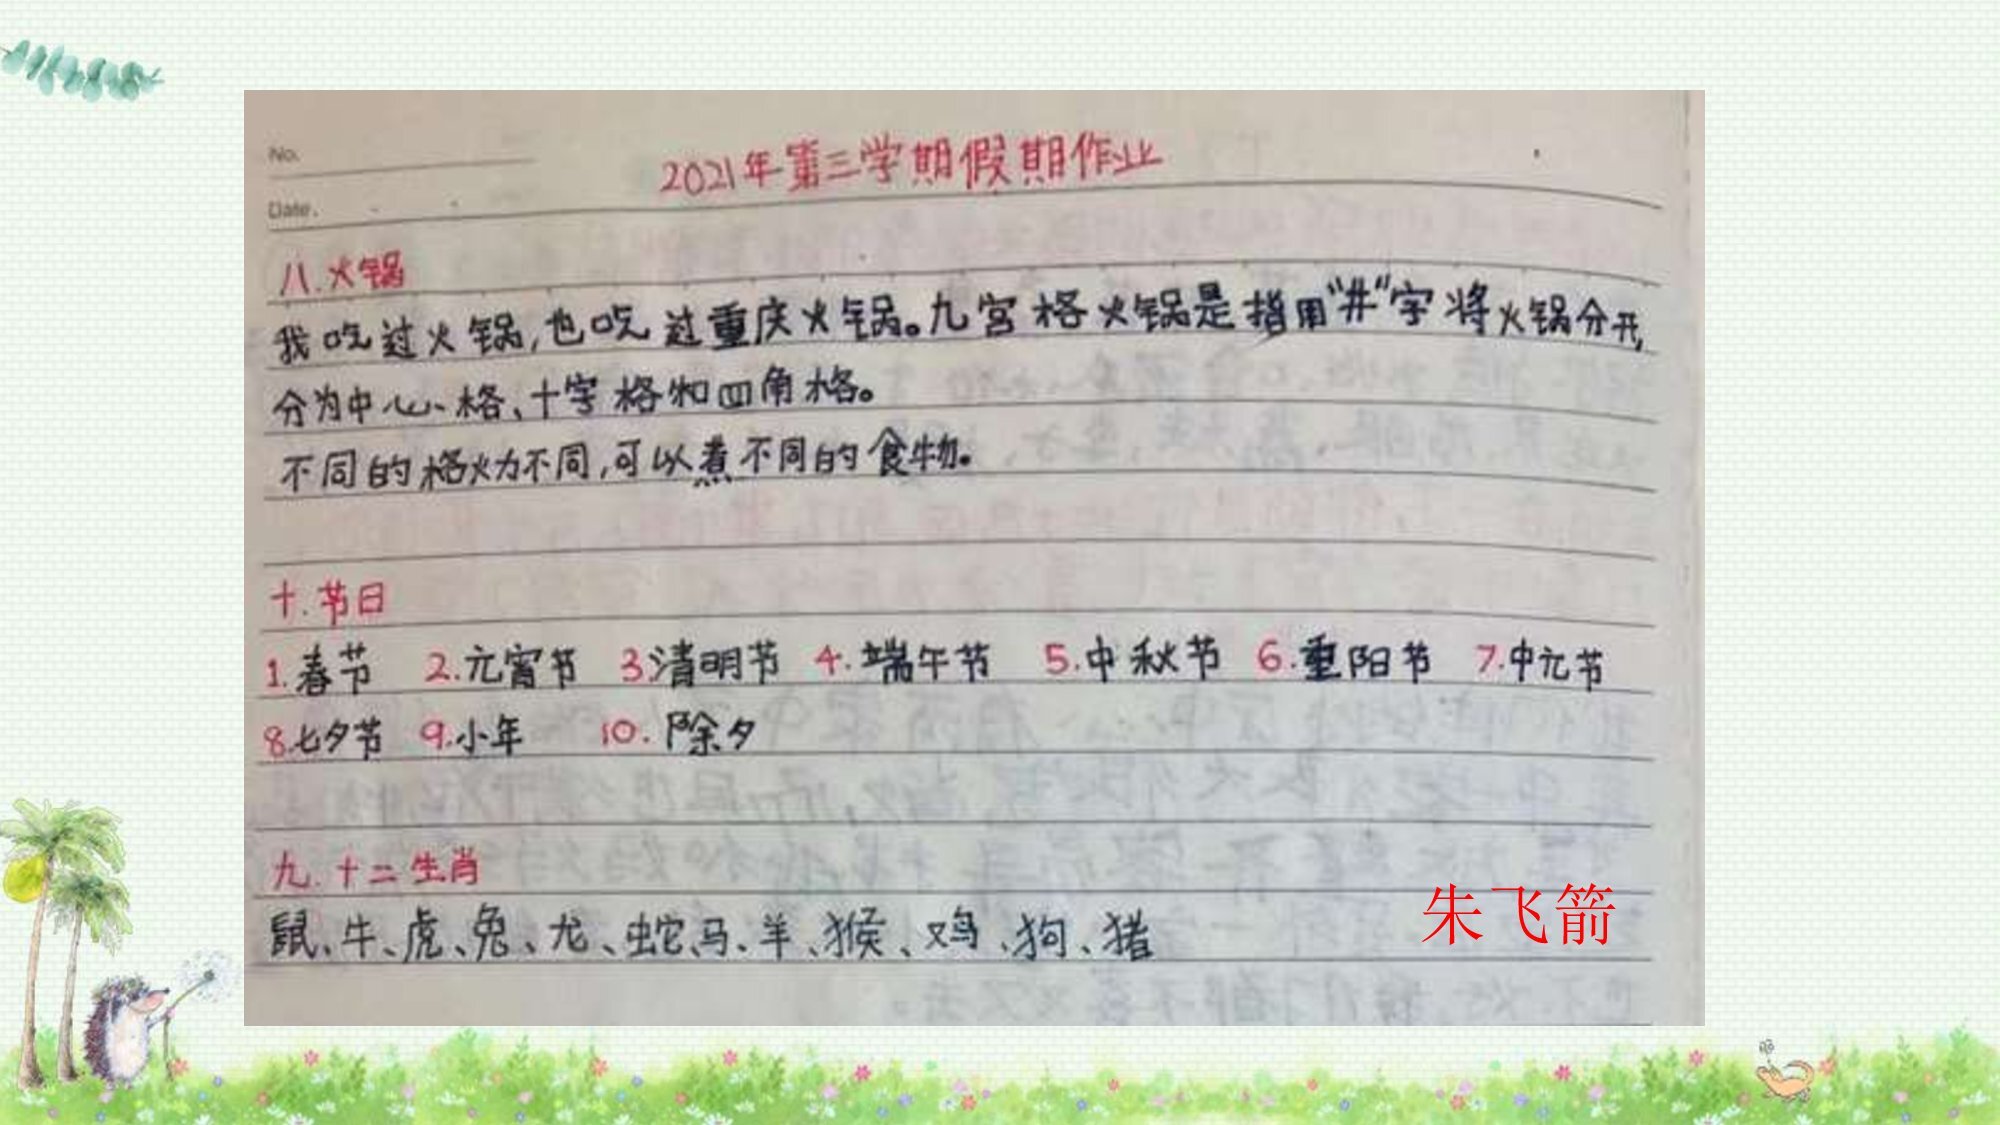 No.
2021年第三学期假期作业
Date.
八.火锅
我吃过火锅,也吃过重庆火锅。九宫格火锅是指用“井”字将火锅分开,
分为中心格、十字格和四角格。
不同的格火力不同,可以煮不同的食物。
十.节日
1.春节 2.元宵节 3.清明节 4.端午节 5.中秋节 6.重阳节 7.中元节
8.七夕节 9.小年 10.除夕
九.十二生肖
鼠、牛、虎、兔、龙、蛇、马、羊、猴、鸡、狗、猪
朱飞箭